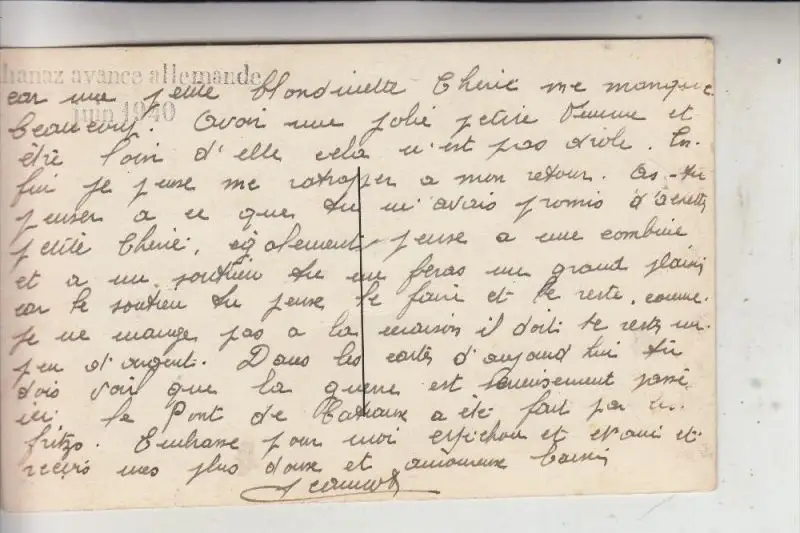 hanaz avance allemande
juin 1940
car une petite blondinette cherie me manque
beaucoup. Avoir une jolie petite femme et
être loin d'elle cela n'est pas drole. En-
fin je pense me ratrapper a mon retour. As-tu
penser a ce que tu m'avais promis d'
petite cherie, egalement pense a une combine
et a un soutien tu me feras un grand plaisir
car le soutien tu peux le faire et le reste, comme
je ne mange pas a la maison il doit te rester un
peu d'argent. Dans les cartes d'aujourd'hui tu
dois voir que la guerre est serieusement passé
ici. le Pont de a été fait par les
fritzs. Embrasse pour moi et et
reçois mes plus doux et amoureux baisers